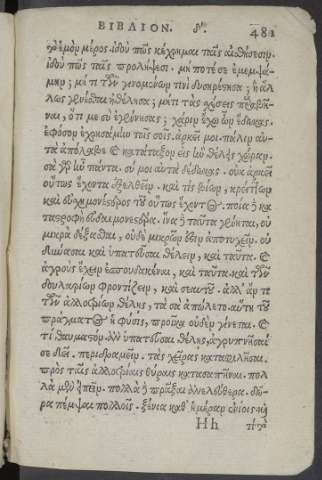 ΒΙΒΛΙΟΝ. δʹ. 481
τὸ ἐμὸν μέρος· ἰδοὺ πῶς κέχρημαι ταῖς αἰσθήσεσιν,
ἰδοὺ πῶς ταῖς προλήψεσι. μή ποτέ σε ἐμεμψά-
μην; μή τι τῶν γενομένων τινὶ δυσηρέστησα; ἢ ἄλ
λως γενέσθαι ἠθέλησα; μήτι τὰς σχέσεις παραβῆ-
ναι, ὅτι με σὺ ἐγέννησας; χάριν ἔχω ὧν ἔδωκας.
ἐφόσον ἐχρησάμην τοῖς σοῖς. ἀρκεῖ μοι. πάλιν αὐ-
τὰ ἀπόλαβε καὶ κατάταξον εἰς ἣν θέλῃς χώραν.
σὰ γὰρ ἦν πάντα. σύ μοι αὐτὰ δέδωκας. οὐκ ἀρκεῖ
οὕτως ἔχοντα ἐξελθεῖν. καὶ τίς βίων, κρείττων
καὶ εὐσχημονέστερος τοῦ οὕτως ἔχοντος. ποία δὲ κα
ταστροφὴ εὐδαιμονεστέρα. ἵνα δὲ ταῦτα γένηται, οὐ
μικρὰ δέξασθαι, οὐδὲ μικρῶν ἔστιν ἀποτυχεῖν. οὐ
δύνασαι καὶ ὑπατεῦσαι θέλειν, καὶ ταῦτα. καὶ
ἀγροὺς ἔχειν ἐσπουδακέναι, καὶ ταῦτα. καὶ τῶν
δουλαρίων φροντίζειν, καὶ σεαυτοῦ. ἀλλ' ἄν τι
τῶν ἀλλοτρίων θέλῃς, τὰ σὰ ἀπώλετο. αὕτη τοῦ
πράγματος ἡ φύσις, προῖκα οὐδὲν γίνεται. καὶ
τί θαυμαστόν. ἂν ὑπατεῦσαι θέλῃς, ἀγρυπνῆσαί
σε δεῖ. περιδραμεῖν. τὰς χεῖρας καταφιλῆσαι.
πρὸς ταῖς ἀλλοτρίαις θύραις κατασαπῆναι. πολ
λὰ μὲν εἰπεῖν. πολλὰ δὲ πρᾶξαι ἀνελεύθερα. δῶ-
ρα πέμψαι πολλοῖς. ξένια καθ' ἡμέραν ἐνίοις. καὶ
Hh τί τὸ